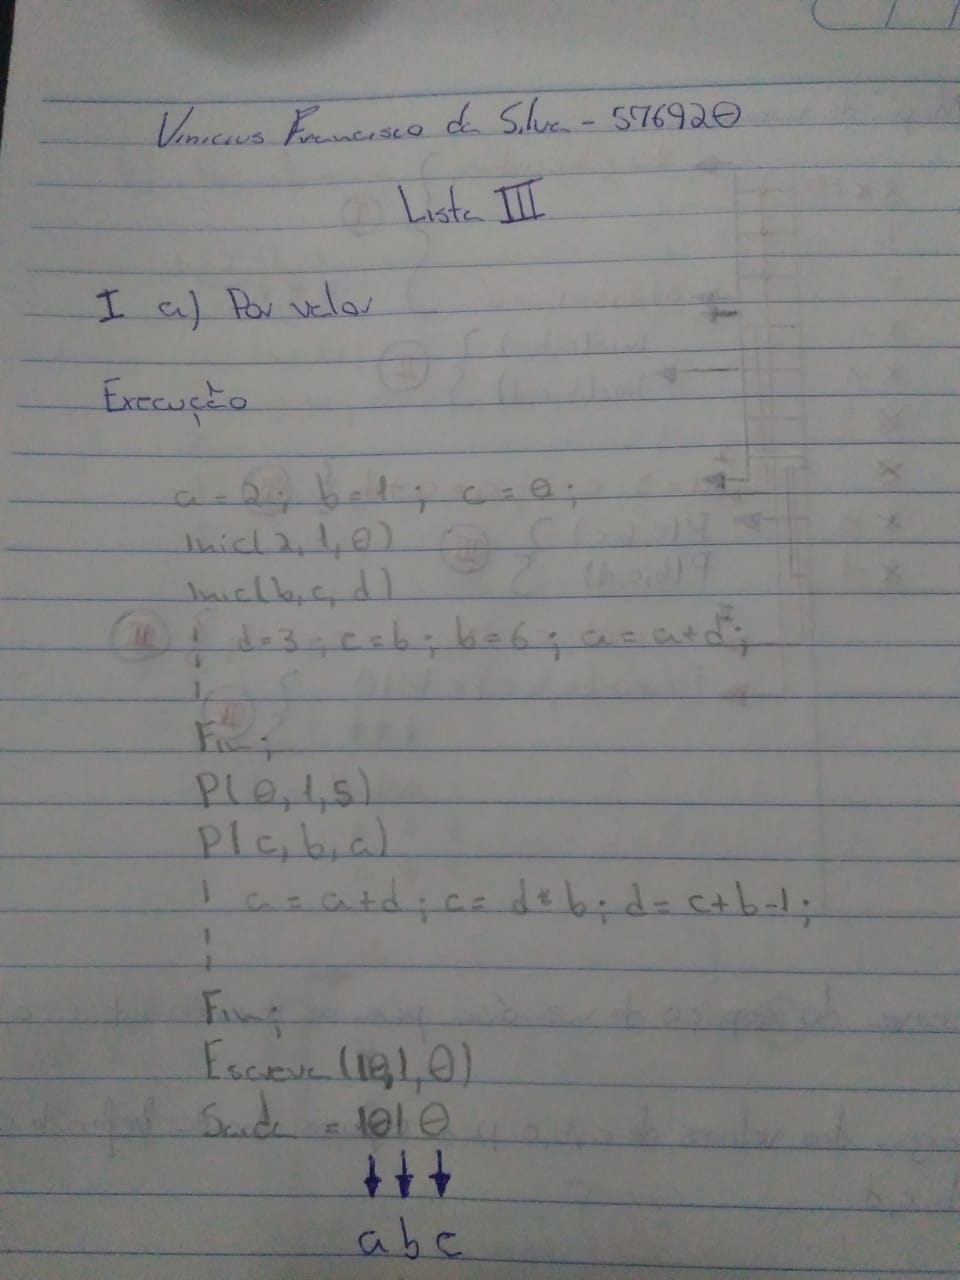 Vinicius Francisco da Silva - 576920
Lista III
I a) Por valor
Execução
a = 2; b = 1; c = 0;
Inic(2, 1, 0)
Inic(b, c, d)
d = 3; c = b; b = 6; a = a + d;
Fim;
P(0, 1, 5)
P(c, b, a)
a = a + d; c = d * b; d = c + b - 1;
Fim;
Escreve (10, 1, 0)
Saída = 10 1 0
a b c